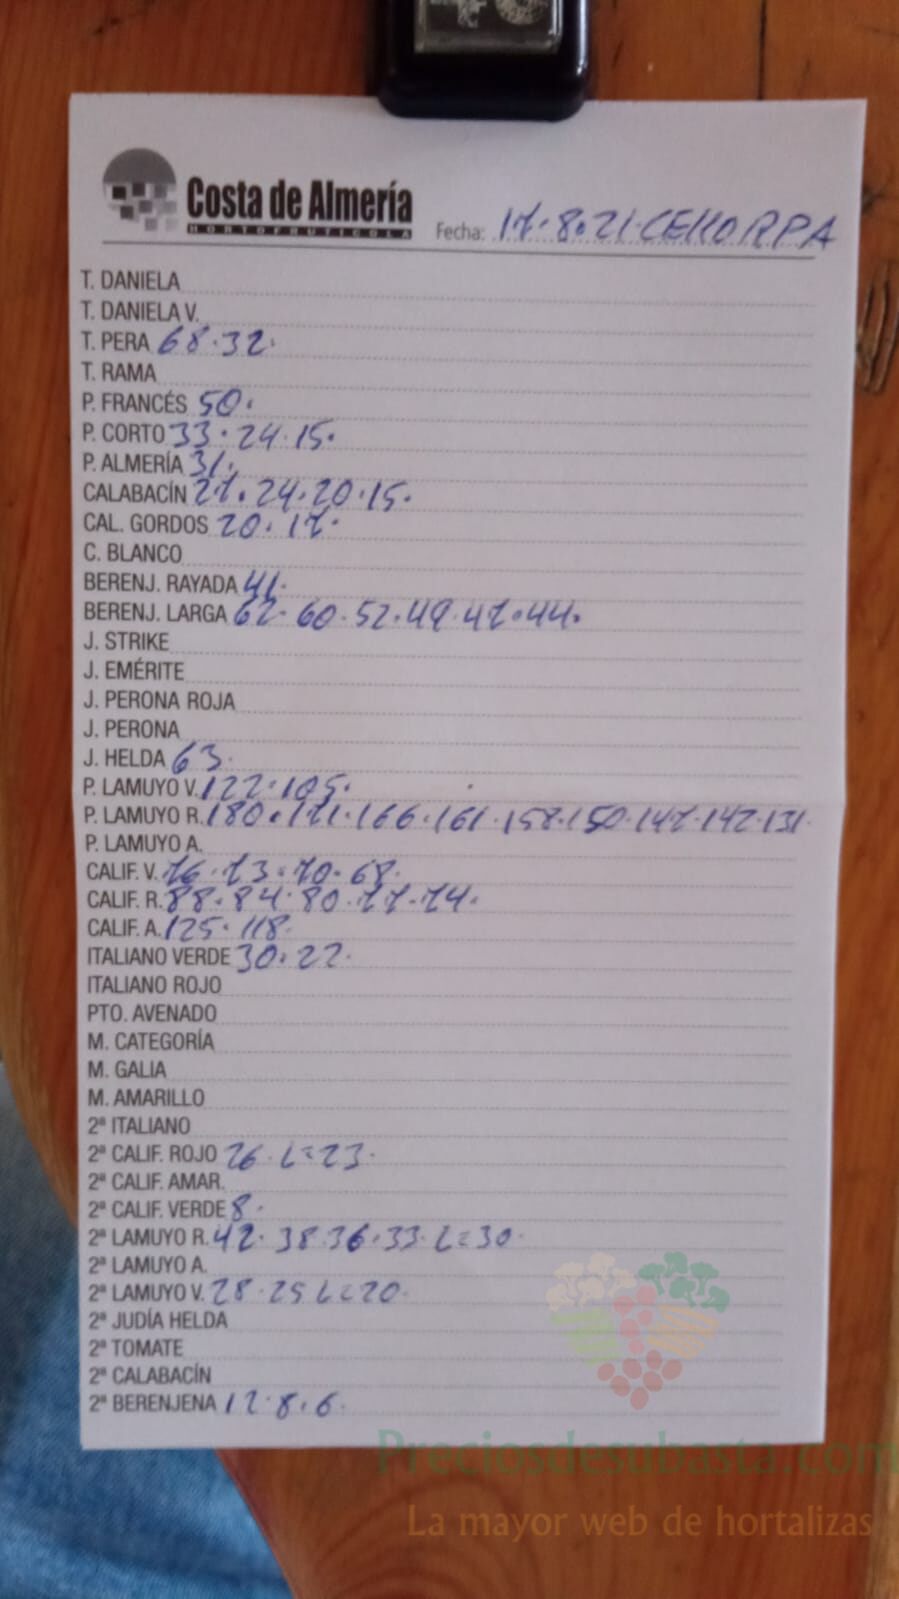 Costa de Almería
HORTOFRUTICOLA
Fecha: 17.8.21.CEHORPA
T. DANIELA
T. DANIELA V.
T. PERA 68.32.
T. RAMA
P. FRANCÉS 50.
P. CORTO 33.24.15.
P. ALMERÍA 31.
CALABACÍN 27.24.20.15.
CAL. GORDOS 20.17.
C. BLANCO
BERENJ. RAYADA 41.
BERENJ. LARGA 62.60.52.49.47.44.
J. STRIKE
J. EMÉRITE
J. PERONA ROJA
J. PERONA
J. HELDA 63.
P. LAMUYO V. 122.105.
P. LAMUYO R. 180.171.166.161.158.150.147.142.131.
P. LAMUYO A.
CALIF. V. 76.73.70.68.
CALIF. R. 88.84.80.77.74.
CALIF. A. 125.118.
ITALIANO VERDE 30.22.
ITALIANO ROJO
PTO. AVENADO
M. CATEGORÍA
M. GALIA
M. AMARILLO
2ª ITALIANO
2ª CALIF. ROJO 26.L=23.
2ª CALIF. AMAR.
2ª CALIF. VERDE 8.
2ª LAMUYO R. 42.38.36.33.L=30.
2ª LAMUYO A.
2ª LAMUYO V. 28.25 L=20.
2ª JUDÍA HELDA
2ª TOMATE
2ª CALABACÍN
2ª BERENJENA 12.8.6.
Preciosdesubasta.com
La mayor web de hortalizas